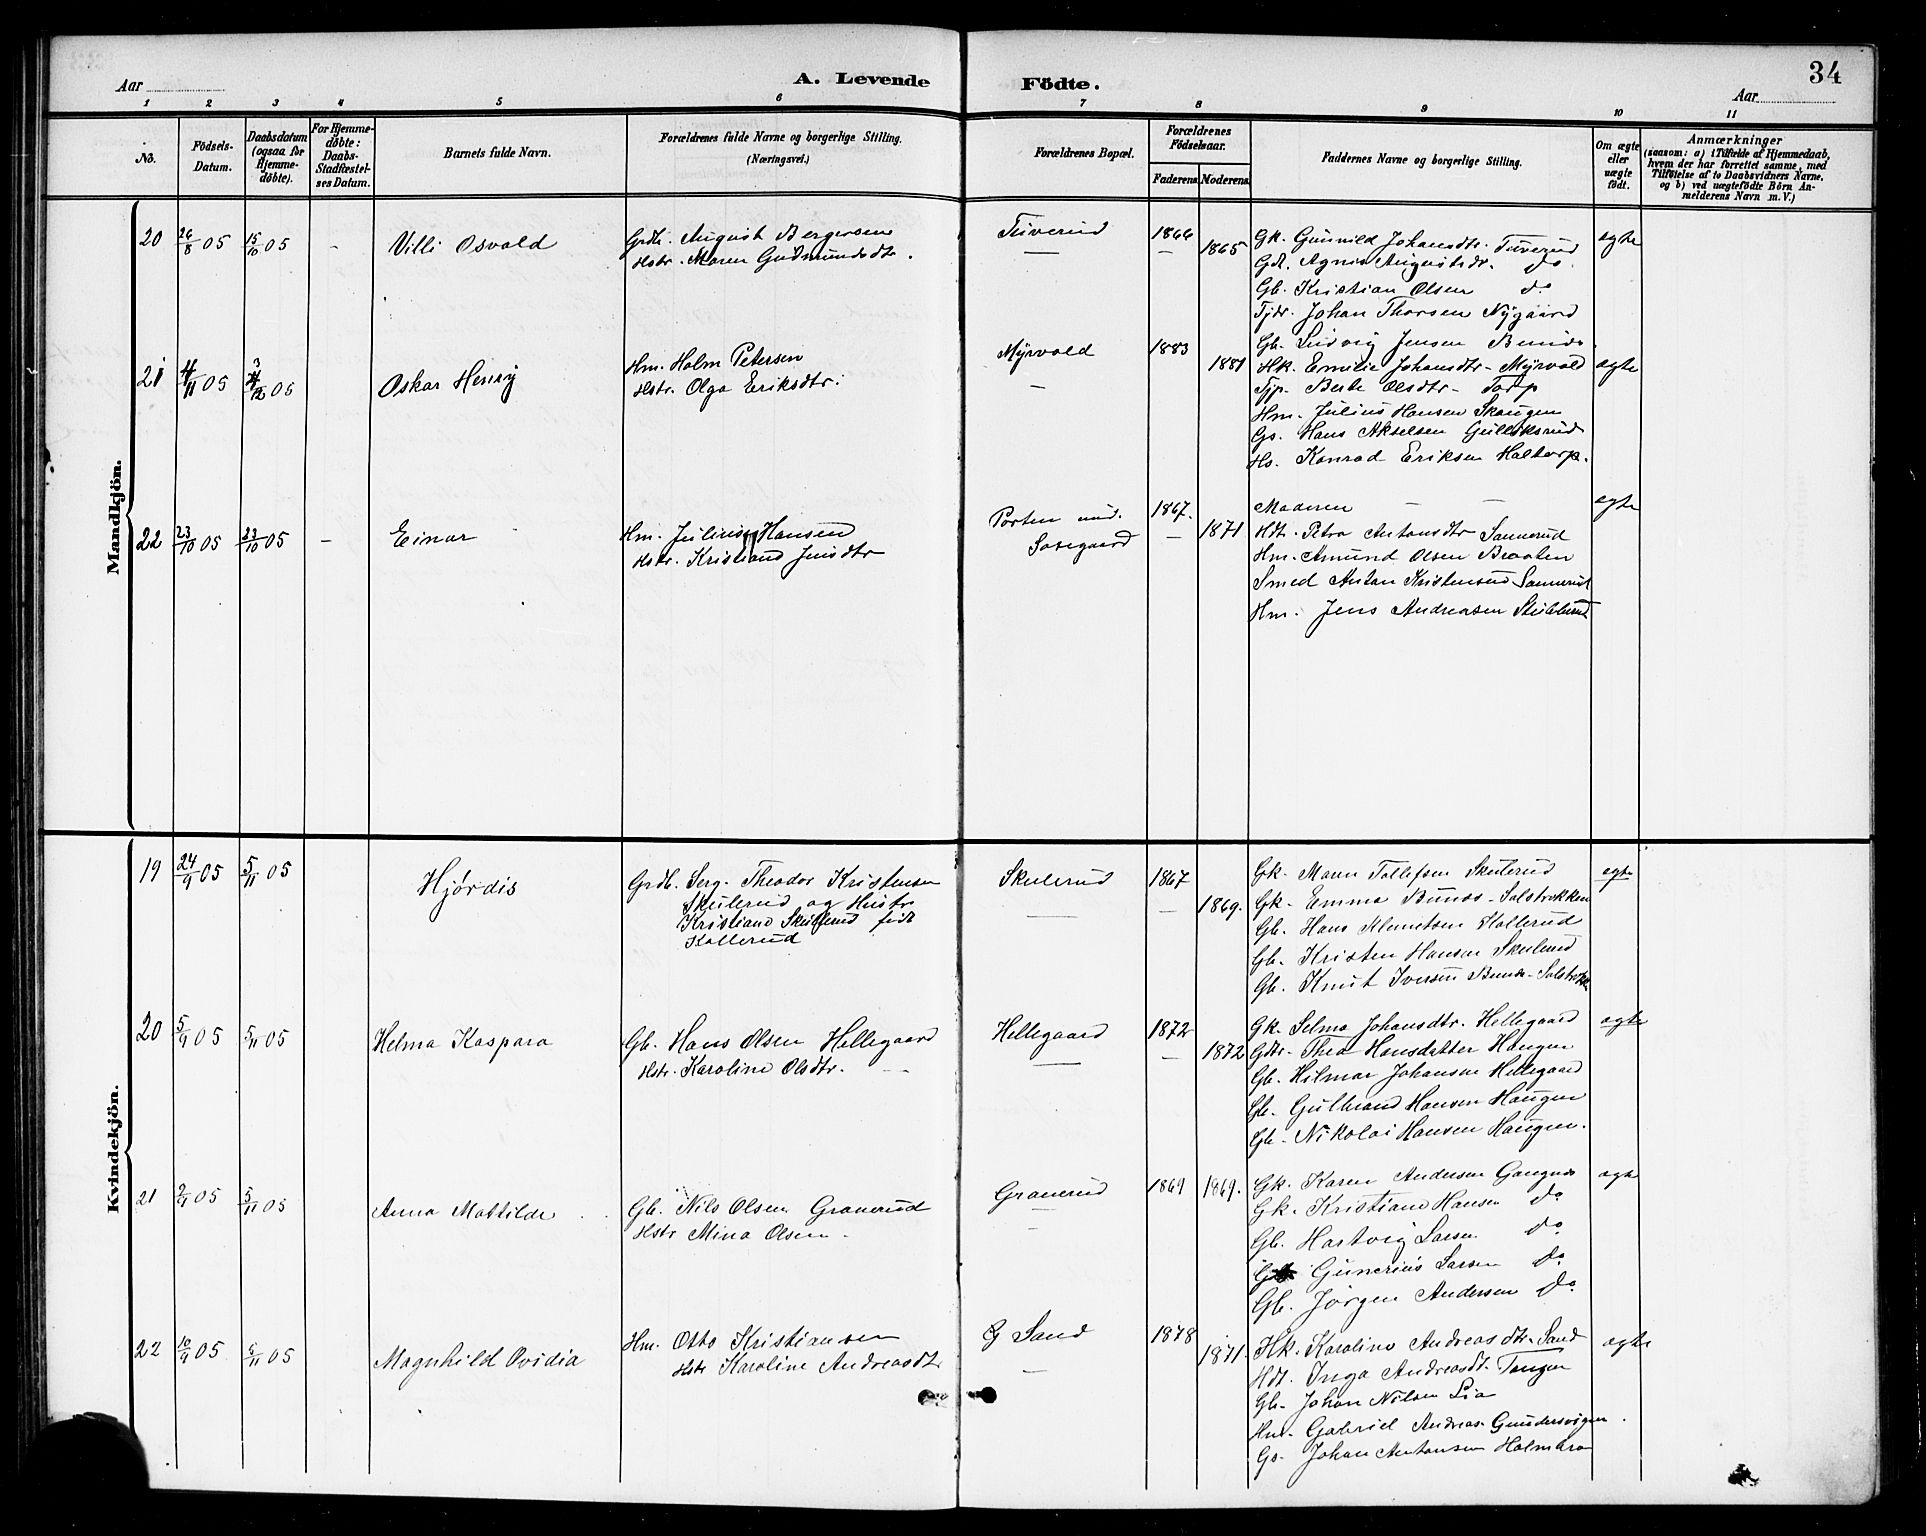 34
A. Levende Födte.
Aar
Aar
1 2 3 4 5 6 7 8 9 10 11
No.
Födsels-Datum.
Daabsdatum (ogsaa for Hjemme-döbte).
For Hjemme-döbte: Daabs-Stadfæstel-ses Datum.
Barnets fulde Navn.
Forældrenes fulde Navne og borgerlige Stilling. (Næringsvei.)
Forældrenes Bopæl.
Forældrenes Födselsaar.
Faderens
Moderens
Faddernes Navne og borgerlige Stilling.
Om ægte eller uægte födt.
Anmærkninger
(saasom: a) i Tilfælde af Hjemmedaab, hvem der har forrettet samme, med Tilföielse af to Daabsvidners Navne, og b) ved uægtefödte Börn An-melderens Navn m. V.)
Mandkjön.
20 26/8 05 15/10 05 - Villi Osvald
Grdb. August Bergersen
Hstr. Maren Gudmundsdtr.
Tuverud 1866 1865
Gk. Gunvild Johansdtr. Tuverud
Gdt. Agnes Augustsdr. do.
Gb. Kristian Olsen do
Tjdr. Johan Thorsen Nygaard
Gb. Ludvig Jensen
ægte
21 4/11 05 3/12 05 Oskar Henry
Hm. Holm Petersen
Hstr. Olga Eriksdtr.
Myrvold 1883 1881
Hk. Emilie Johansdtr - Myrvold
Tjp. Berte Olsdtr - Torp
Hm. Julius Hansen Skaugen
Gs. Hans Akselsen Gulliksrud
Hs. Konrad Eriksen Holtorp.
ægte
22 23/10 05 23/10 05 - Einar
Hm. Julius Hansen
Hstr. Kristiane Jensdtr
Porten und. Sosegaard 1867. 1871
Moderen
Hdt. Petra Antonsdtr Sannerud
Hm. Amund Olsen Braaten
Smed Anton Kristensen Sannerud
Hm. Jens Andreasen Stublerud
ægte
Kvindekjön.
19 24/9 05 5/11 05 Hjørdis
Grdb. Serg. Theodor Kristensen
Skulerud og Hustr
Kristiane Skulerud født
Hollerud
Skulerud 1867 1869.
Gk. Maren Tollefsen Skulerud
Gk. Emma Bunæs - Solstrokken
Gb. Hans Klemetsen Hollerud
Gb. Kristen Hansen Skulerud
Gb. Knut Iversen Bunæs -
ægte
20 5/9 05 5/11 05 Helma Kaspara
Gb. Hans Olsen Hellegaard
Hstr. Karoline Olsdtr.
Hellegaard 1872 1872
Gk. Selma Johansdtr. Hellegaard
Gdtr. Thea Hansdatter Haugen
Gb. Hilmar Johansen Hellegaard
Gb. Gulbrand Hansen Haugen
Gb. Nikolai Hansen Haugen.
ægte
21 2/9 05 5/11 05 Anna Mattilde
Gb. Nils Olsen Granerud
Hstr Mina Olsen
Granerud 1869 1869.
Gk. Karen Andersen Gangnæs
Gk. Kristiane Hansen do
Gb. Hartvig Larsen do
Gunerius Larsen do
Gb. Jørgen Andersen do
ægte
22 10/9 05 5/11 05 Magnhild Ovidia
Hm. Otto Kristiansen
Hstr Karoline Andreasdtr
G Sand 1878 1871.
Hk. Karoline Andreasdtr. Sand
Hdt. Inga Andreasdt. Tangen
Gb. Johan Nilsen Lia
Hm. Gabriel Andreas. Gundersvigen
Gs. Johan Antonsen Holmbro
ægte